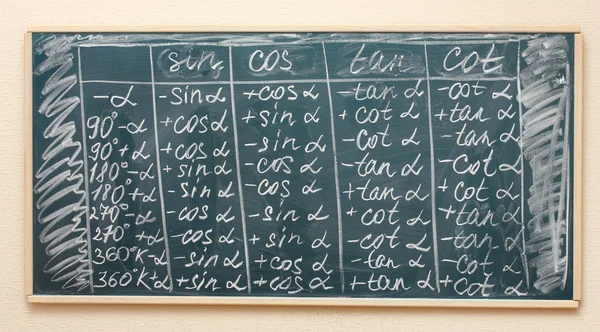 sin cos tan cot
-α -sin α +cos α -tan α -cot α
90°-α +cos α +sin α +cot α +tan α
90°+α +cos α -sin α -cot α -tan α
180°-α +sin α -cos α -tan α -cot α
180°+α -sin α -cos α +tan α +cot α
270°-α -cos α -sin α +cot α +tan α
270°+α -cos α +sin α -cot α -tan α
360°K-α -sin α +cos α -tan α -cot α
360°K+α +sin α +cos α +tan α +cot α